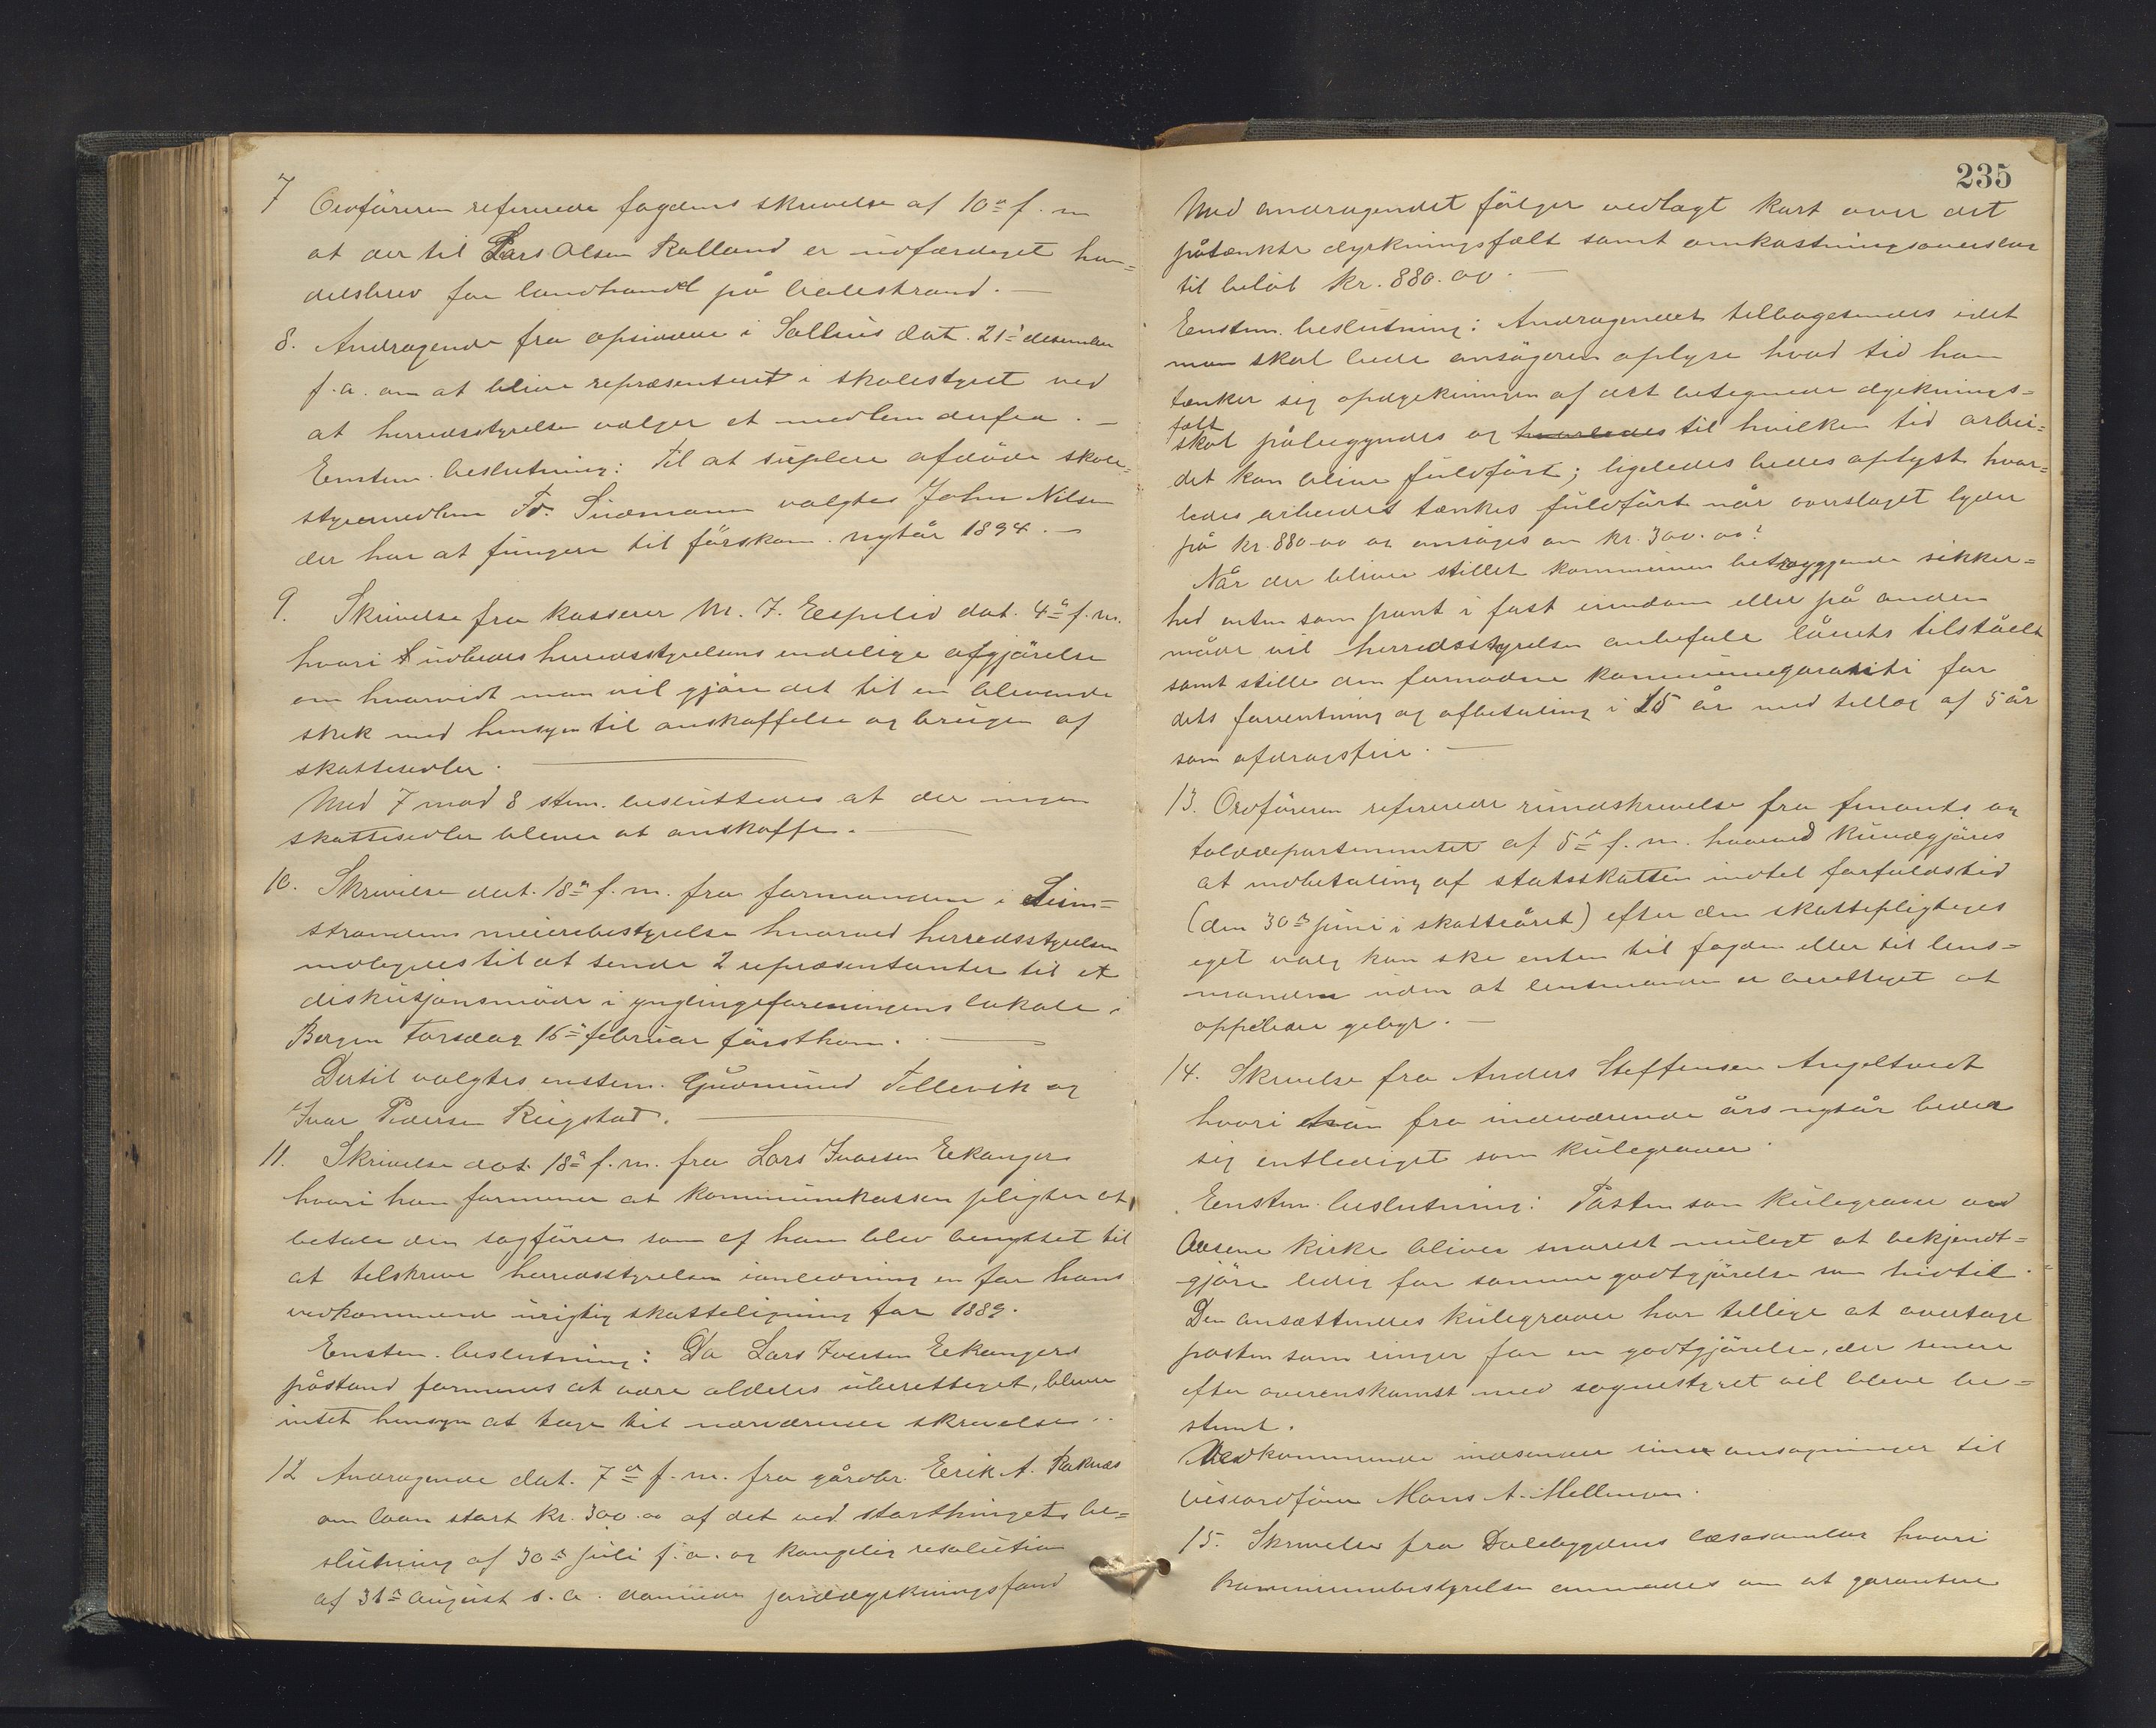 7 Ordføreren refererede fogdens skrivelse af 10de f. m
at der til Lars Olsen Rolland er udfærdiget han=
delsbrev for landhandel på Balestrand. —
8. Andragende fra opsidderne i Sollius dat. 21' desember
f. a. om at blive repræsenteret i skolestyret ved
at herredsstyrelsen vælger et medlem derfra. —
Enstem. beslutning: Til at suplere afdøde skole=
styremedlem Fr. Sudmann valgtes John Nilsen
der har at fungere til førskom. nytår 1894. —
9. Skrivelse fra kasserer M. J. Eespelid dat. 4de f. m.
hvori udbedes herredsstyrelsens endelige afgjørelse
om hvorvidt man vil gjøre det til en blivende
skik med hensyn til anskaffelse og brugen af
skattesedler. —
Med 7 mod 8 stem. besluttedes at der ingen
skattesedler bliver at anskaffe. —
10. Skrivelse dat. 18de f. m. fra formanden i Seim=
strandens meieribestyrelse hvorved herredsstyrelsen
indbydes til at sende 2 repræsentanter til et
diskusjonsmøde i ynglingeforeningens lokale i
Bergen Torsdag 16de februar førstkom. —
Dertil valgtes enstem. Gudmund Tellevik og
Ivar Pedersen Rigstad. —
11. Skrivelse dat. 18de f. m. fra Lars Ivarsen Eekanger
hvori han formener at kommunekassen pligter at
betale den sagfører som af ham blev benyttet til
at tilskrive herredsstyrelsen ianledning en for hans
vedkommend urigtig skatteligning for 1889.
Enstem. beslutning: Da Lars Iversen Eekangers
påstand formenes at være aldeles uberettiget, bliver
intet hensyn at tage til nærværende skrivelse.
12 Andragende dat. 7de f. m. fra gårdbr. Eerik A. Raknæs
om laan stort kr. 300.00 af det ved storthingets be=
slutning af 30de juli f. a. og kongelig resolution
af 31de august s. a. dannede jorddyrkningsfond
235
Med andragendet følger vedlagt kart over det
påtænkte dyrkningsfelt samt omkostningsoverslag
til beløb kr. 880.00. —
Eenstem. beslutning: Andragendet tilbagesendes idet
man skal bede ansøgeren oplyse hvad tid han
tænker sig opdyrkningen af det betegnede dyrknings=
felt
skal påbegyndes og hvorledes til hvilken tid arbei=
det kan blive fuldført; ligeledes bedes oplyst hvor=
ledes arbeidet tænkes fuldført når overslaget lyder
på kr. 880.00 og ansøges om kr. 300.00?
Når der bliver stillet kommunen betryggende sikker=
hed enten som pant i fast eiendom eller på anden
måde vil herredsstyrelsen anbefale lånets tilståelse
samt stille den fornødne kommunegaranti for
dets forrentning og afbetaling i 15 år med tillæg af 5 år
som afdragsfrie. —
13. Ordføreren refererede rundskrivelse fra finants og
tolddepartementet af 5te f. m. hvorved kundgjøres
at indbetaling af statsskatten indtil forfaldstid
(den 30de juni i skatteåret) efter den skattepligtiges
eget valg kan ske enten til fogden eller til lens=
manden uden at lensmanden er berettiget at
oppebære gebyr. —
14. Skrivelse fra Anders Steffensen Angeltveit
hvori han fra indeværende års nytår beder
sig entlediget som kulegraver.
Eenstem. beslutning: Posten som kulegraver ved
Aasene kirke bliver snarest muligt at bekjendt=
gjøre ledig for samme godtgjørelse som hidtil.
Den ansættendes kulegraver har tillige at overtage
posten som ringer for en godtgjørelse, der senere
efter overenskomst med sognestyret vil blive be=
stemt.
Vedkommende indsender sine ansøgninger til
viseordfører Mons A. Mellingen.
15. Skrivelse fra Dalebygdens læsesamlag hvori
kommunebestyrelsen anmodes om at garantere